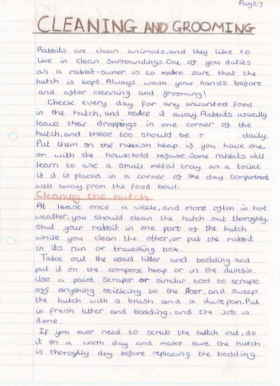 Page 7
CLEANING AND GROOMING
Rabbits are clean animals, and they like to
live in clean surroundings. One of you duties
as a rabbit-owner is to make sure that the
hutch is kept. Always wash your hands before
and after cleaning and grooming!
Check every day for any uneaten food
in the hutch, and take it away. Rabbits usually
leave their droppings in one corner of the
hutch, and these too should be r daily.
Put them on the rubbish heap if you have one
or with the household refuse. Some rabbits will
learn to use a small metal tray as a toilet
if it is placed in a corner of the day compartment
well away from the food bowl.
Cleaning the hutch.
At lease once a week, and more often in hot
weather, you should clean the hutch out thoroghly.
Shut your rabbit in one part of the hutch
while you clean the other, or put the rabbit
in its run or travelling box.
Take out the used litter and bedding and
put it on the compose heap or in the dustbin.
Use a paint scraper or similar tool to scrape
off anything sticking to the floor, and sweep
the hutch with a brush and a dustpan. Put
in fresh litter and bedding, and the job is
done.
If you ever need to scrub the hutch out, do
it on a warm day and make sure the hutch
is thoroghly dry before replacing the bedding.